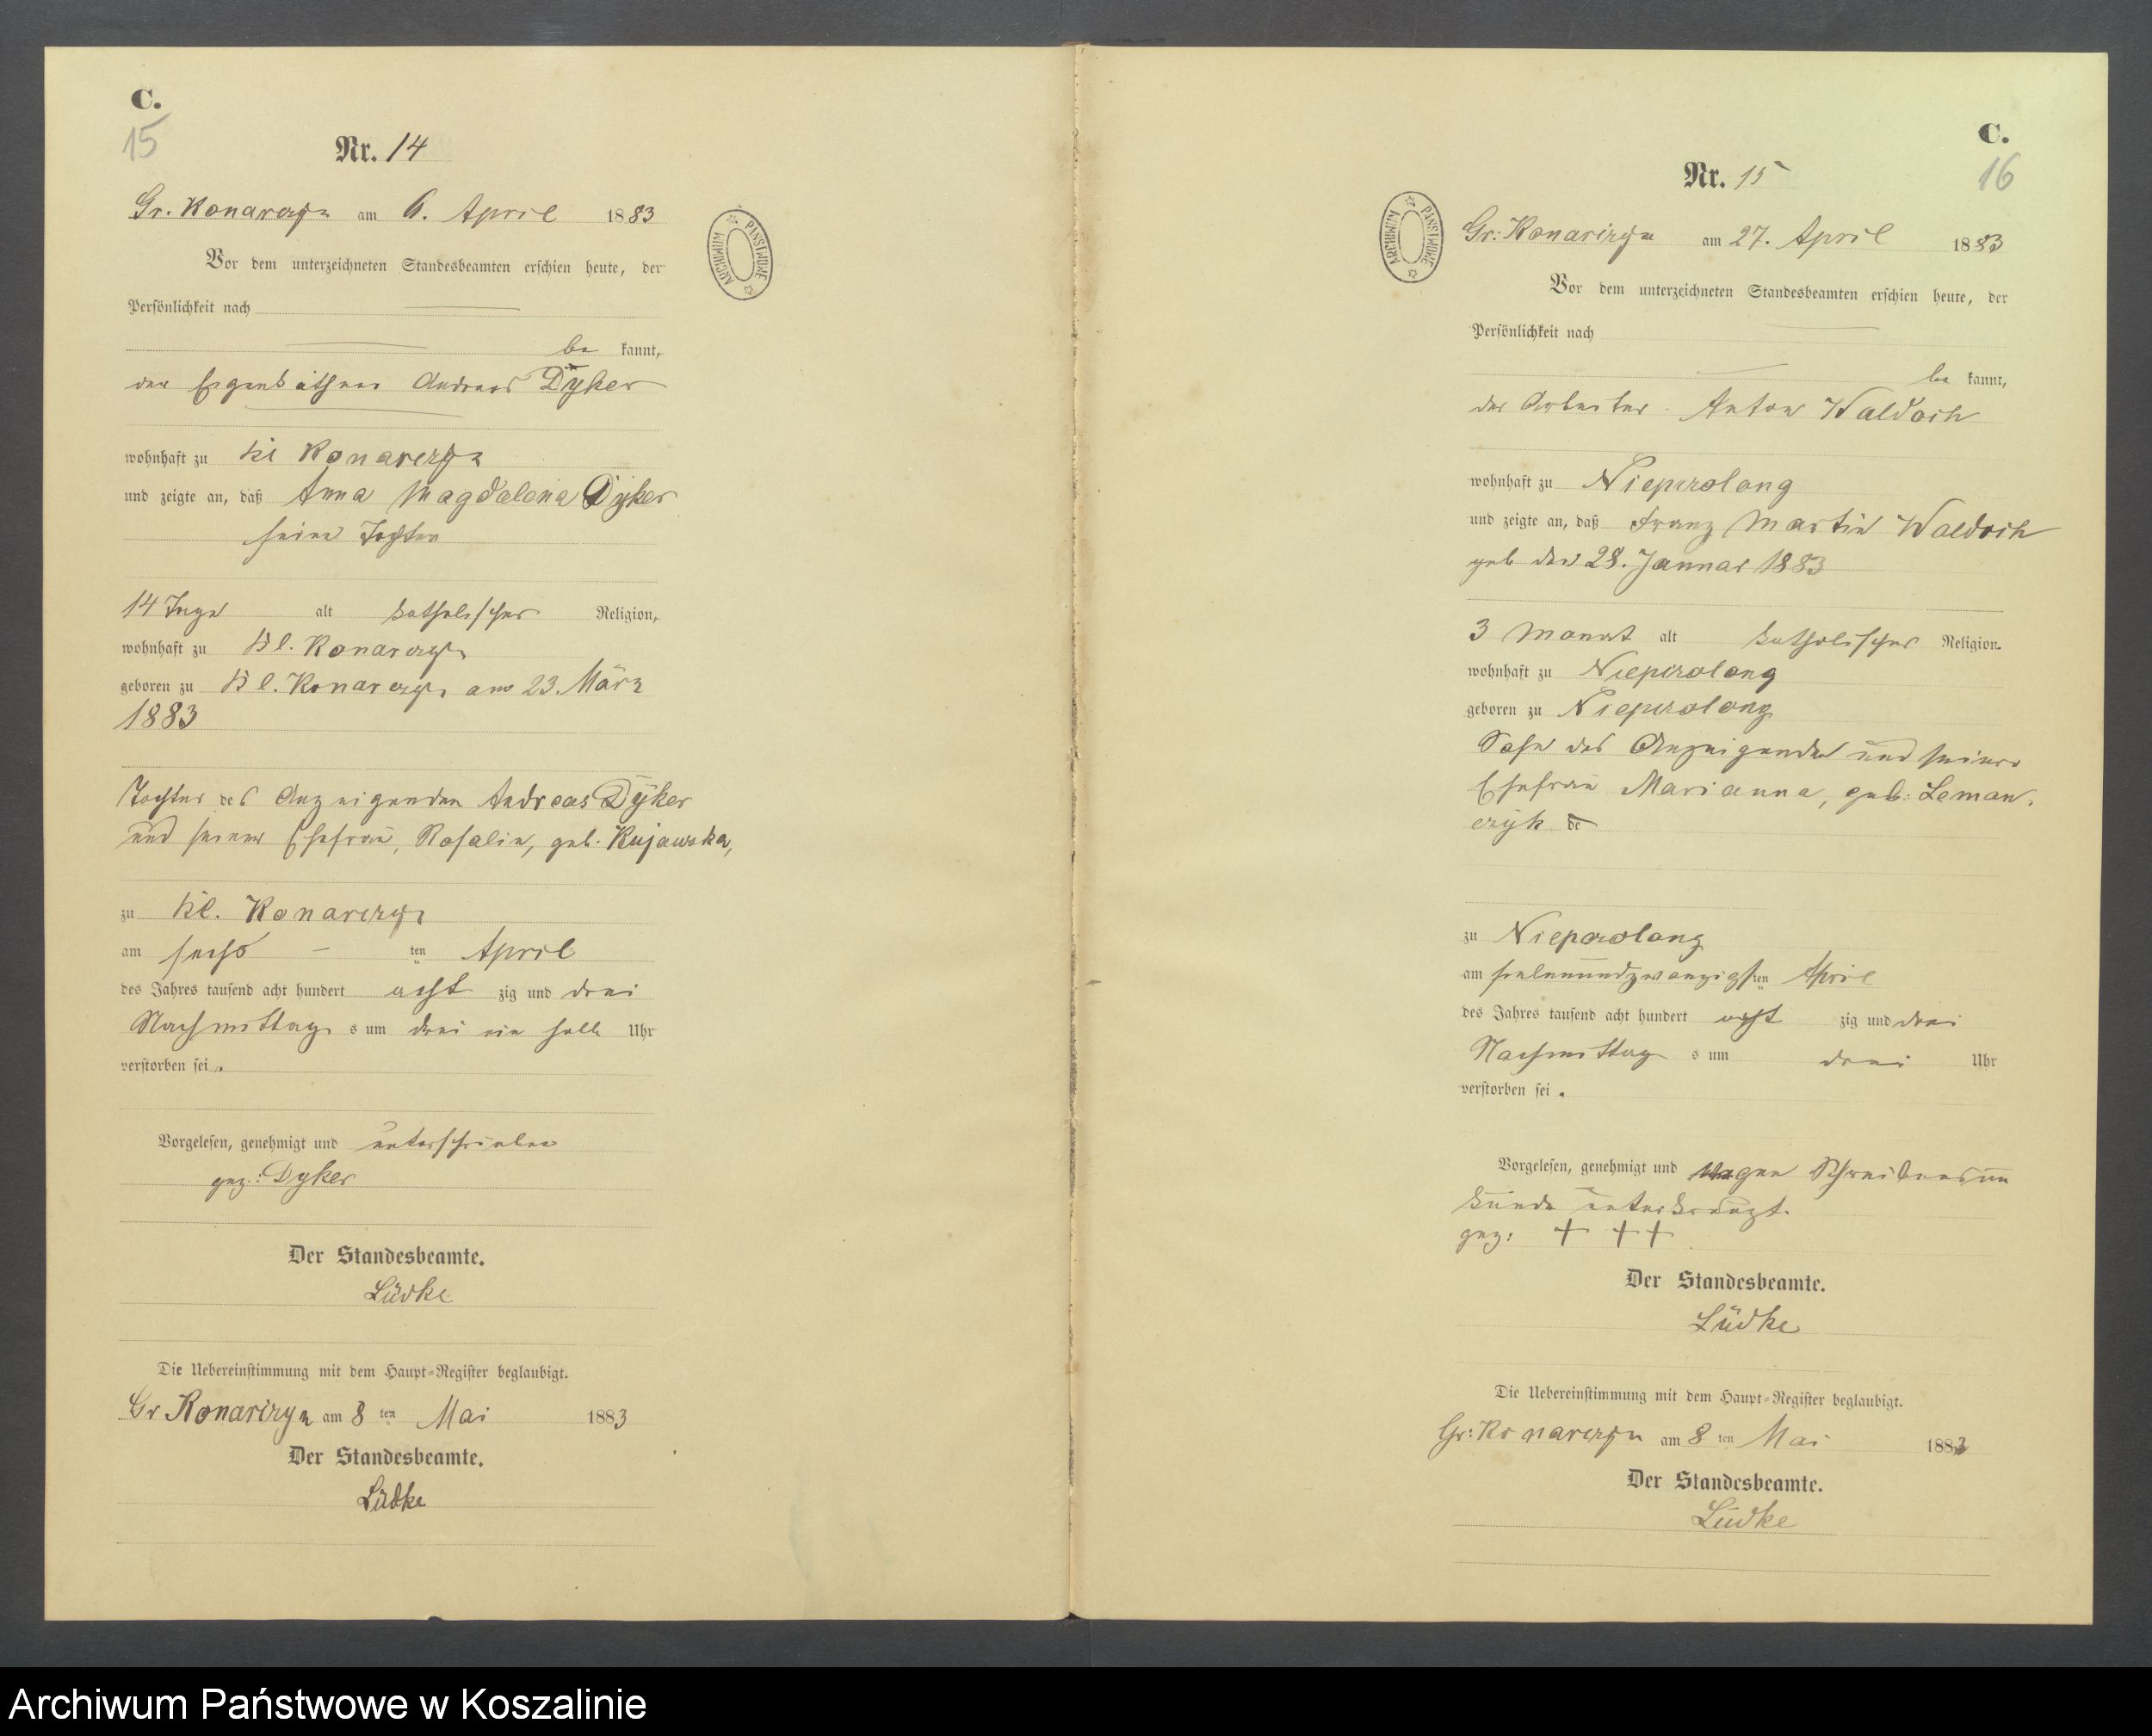 C.
15
Nr. 14
Gr. Konarczyn am 6. April 1883
Vor dem unterzeichneten Standesbeamten erschien heute, der
Persönlichkeit nach
be kannt,
der Eigenkäthner Andreas Dyker
wohnhaft zu Kl Konarczyn
und zeigte an, daß Anna Magdalena Dyker
seine Tochter
14 Tage alt katholischer Religion,
wohnhaft zu Kl. Konarczyn
geboren zu Kl. Konarczyn am 23. März
1883
Tochter des Anzeigenden Andreas Dyker
und seiner Ehefrau, Rosalie, geb. Kujawska,
zu Kl. Konarczyn
am sechs ten April
des Jahres tausend acht hundert acht zig und drei
Nachmittag s um drei ein halb Uhr
verstorben sei.
Vorgelesen, genehmigt und unterschrieben
gez: Dyker
Der Standesbeamte.
Lüdke
Die Uebereinstimmung mit dem Haupt-Register beglaubigt.
Gr Konarczyn am 8 ten Mai 1883
Der Standesbeamte.
Lüdke
ARCHIWUM PAŃSTWOWE
C.
16
Nr. 15
Gr: Konarczyn am 27. April 1883
Vor dem unterzeichneten Standesbeamten erschien heute, der
Persönlichkeit nach
be kannt,
der Arbeiter Anton Waldoch
wohnhaft zu Nieprzolong
und zeigte an, daß Franz Martin Waldoch
geb den 28. Januar 1883
3 Monat alt katholischer Religion.
wohnhaft zu Nieprzolong
geboren zu Nieprzolong
Sohn des Anzeigenden und seiner
Ehefrau Marianna, geb: Leman,
czyk
zu Nieprzolong
am siebenundzwanzigsten April
des Jahres tausend acht hundert acht zig und drei
Nachmittag s um drei Uhr
verstorben sei.
Vorgelesen, genehmigt und wegen Schreibensun
kunde unterkreuzt.
gez: + + +
Der Standesbeamte.
Lüdke
Die Uebereinstimmung mit dem Haupt-Register beglaubigt.
Gr: Konarczyn am 8 ten Mai 1883
Der Standesbeamte.
Lüdke
ARCHIWUM PAŃSTWOWE
Archiwum Państwowe w Koszalinie